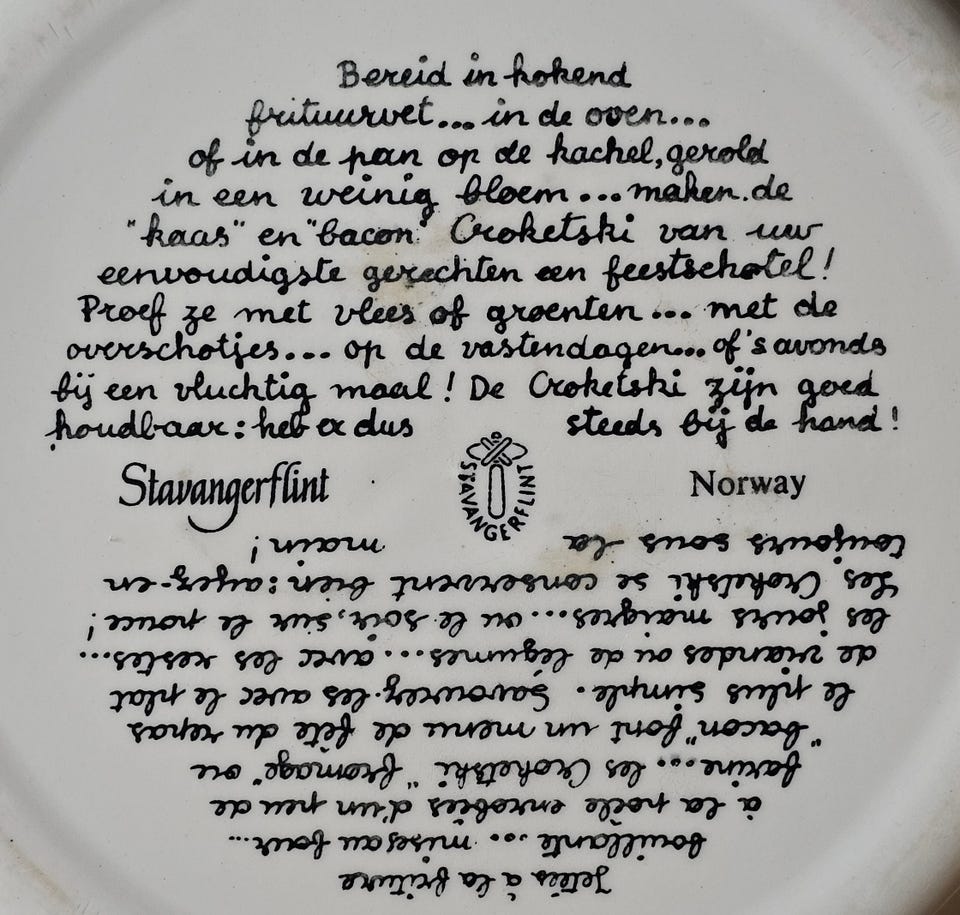 Bereid in kokend
frituurvet... in de oven...
of in de pan op de kachel, gerold
in een weinig bloem... maken de
"kaas" en "bacon" Croketski van uw
eenvoudigste gerechten een feestschotel!
Proef ze met vlees of groenten... met de
overschotjes... op de vastendagen... of 's avonds
bij een vluchtig maal! De Croketski zijn goed
houdbaar: heb er dus steeds bij de hand!
Stavangerflint
STAVANGERFLINT
Norway
Jetées à la friture
bouillante... mises au four...
à la poêle enrobées d'un peu de
farine... les Croketski "fromage" ou
"bacon" font un menu de fête du repas
le plus simple. Savourez-les avec le plat
de viandes ou de légumes... avec les restes...
les jours maigres... ou le soir, sur le pouce!
Les Croketski se conservent bien: ayez-en
toujours sous la main!